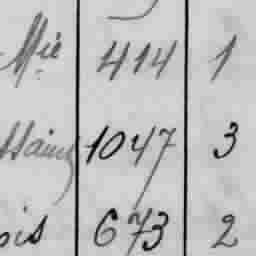 Mie 414 1
1047 3
ois 673 2